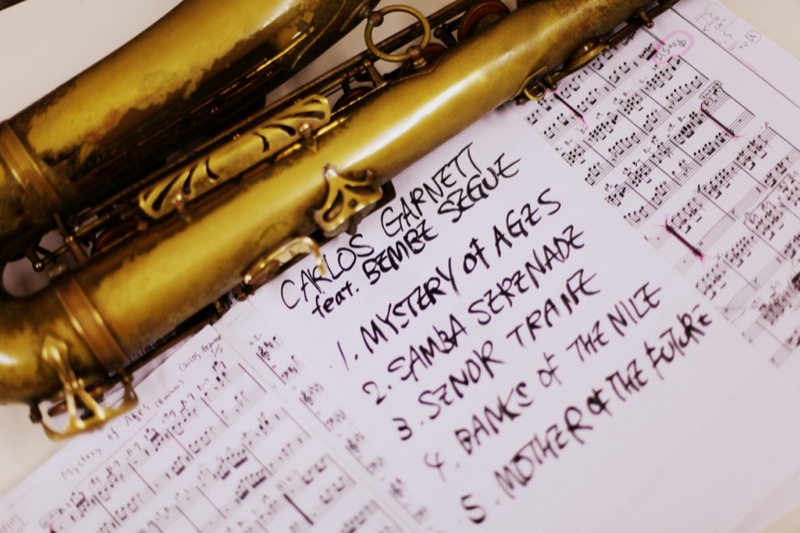 CARLOS GARNETT
feat. BEMBE SEGUE
1. MYSTERY OF AGES
2. SAMBA SERENADE
3. SENOR TRANE
4. BANKS OF THE NILE
5. MOTHER OF THE FUTURE
Mystery of Ages